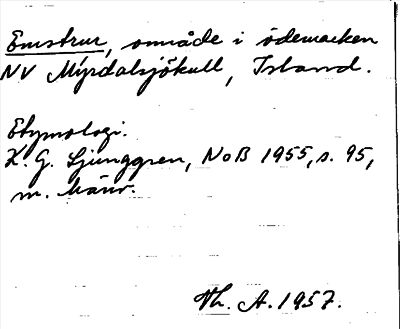 Emstrur, område i ödemarken
NV Mýrdalsjökull, Island.
Etymologi.
K. G. Ljunggren, NoB 1955, s. 95,
m. hänv.
Th. A. 1957.